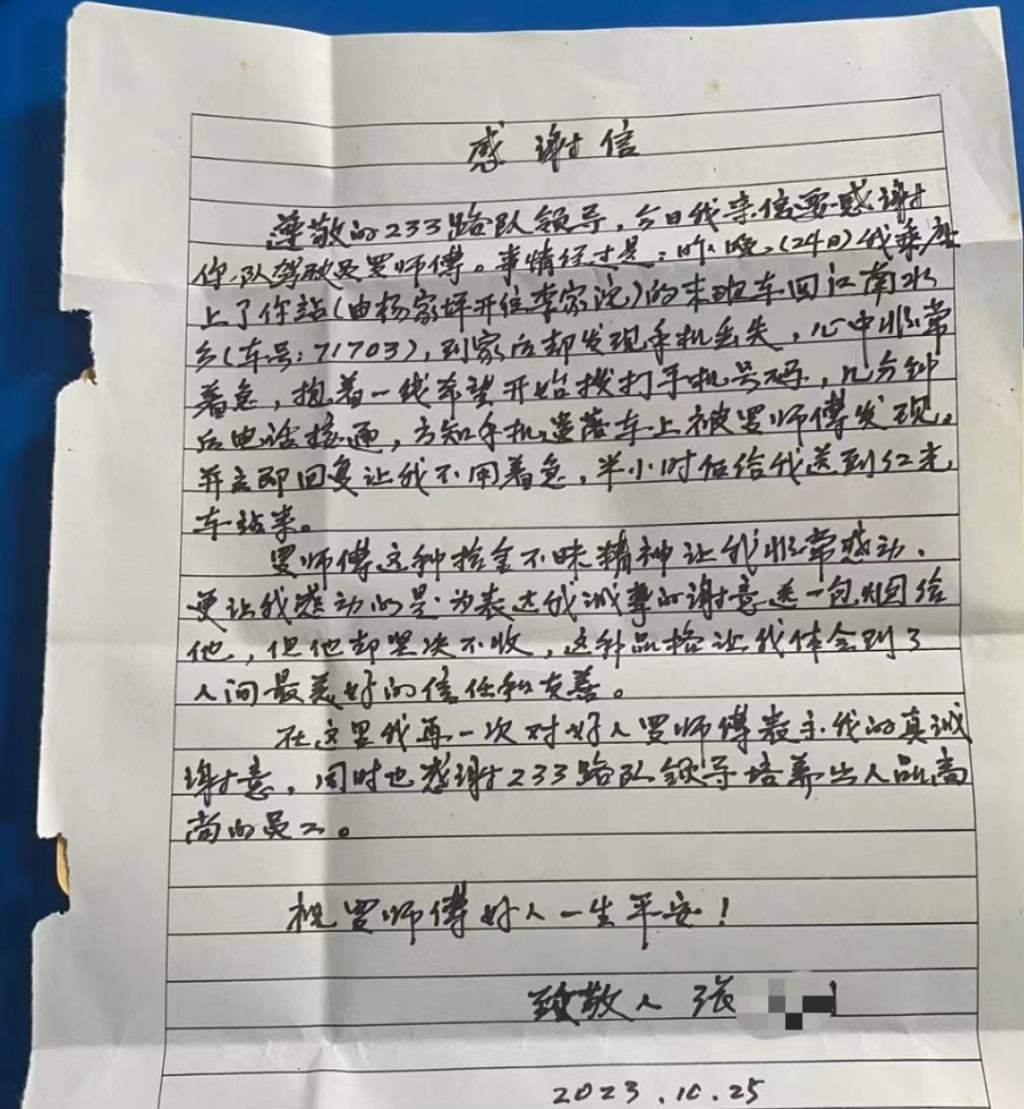 感谢信
尊敬的233路队领导，今日我来信要感谢
你队驾驶员罗师傅。事情经过是：昨晚，（24日）我乘座
上了你站（由杨家坪开往李家沱）的末班车回江南水
乡（车号：71703），到家后却发现手机丢失，心中非常
着急，抱着一线希望开始拨打手机号码，几分钟
后电话接通，方知手机遗落车上被罗师傅发现。
并立即回复让我不用着急，半小时后给我送到红光
车站来。
罗师傅这种拾金不昧精神让我非常感动，
更让我感动的是为表达我诚挚的谢意送一包烟给
他，但他却坚决不收，这种品格让我体会到了
人间最美好的信任和友善。
在这里我再一次对好人罗师傅表示我的真诚
谢意，同时也感谢233路队领导培养出人品高
尚的员工。
祝罗师傅好人一生平安！
致敬人 张
2023.10.25